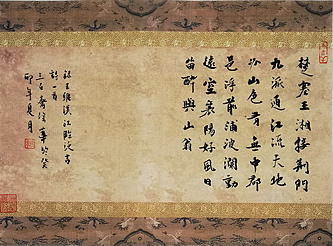 楚塞三湘接荊門
九派通江流天地
外山色有無中郡
邑浮前浦波瀾動
遠空襄陽好風日
留醉與山翁
錄王維漢江臨泛古
詩一首
三石齋於癸
卯年夏月